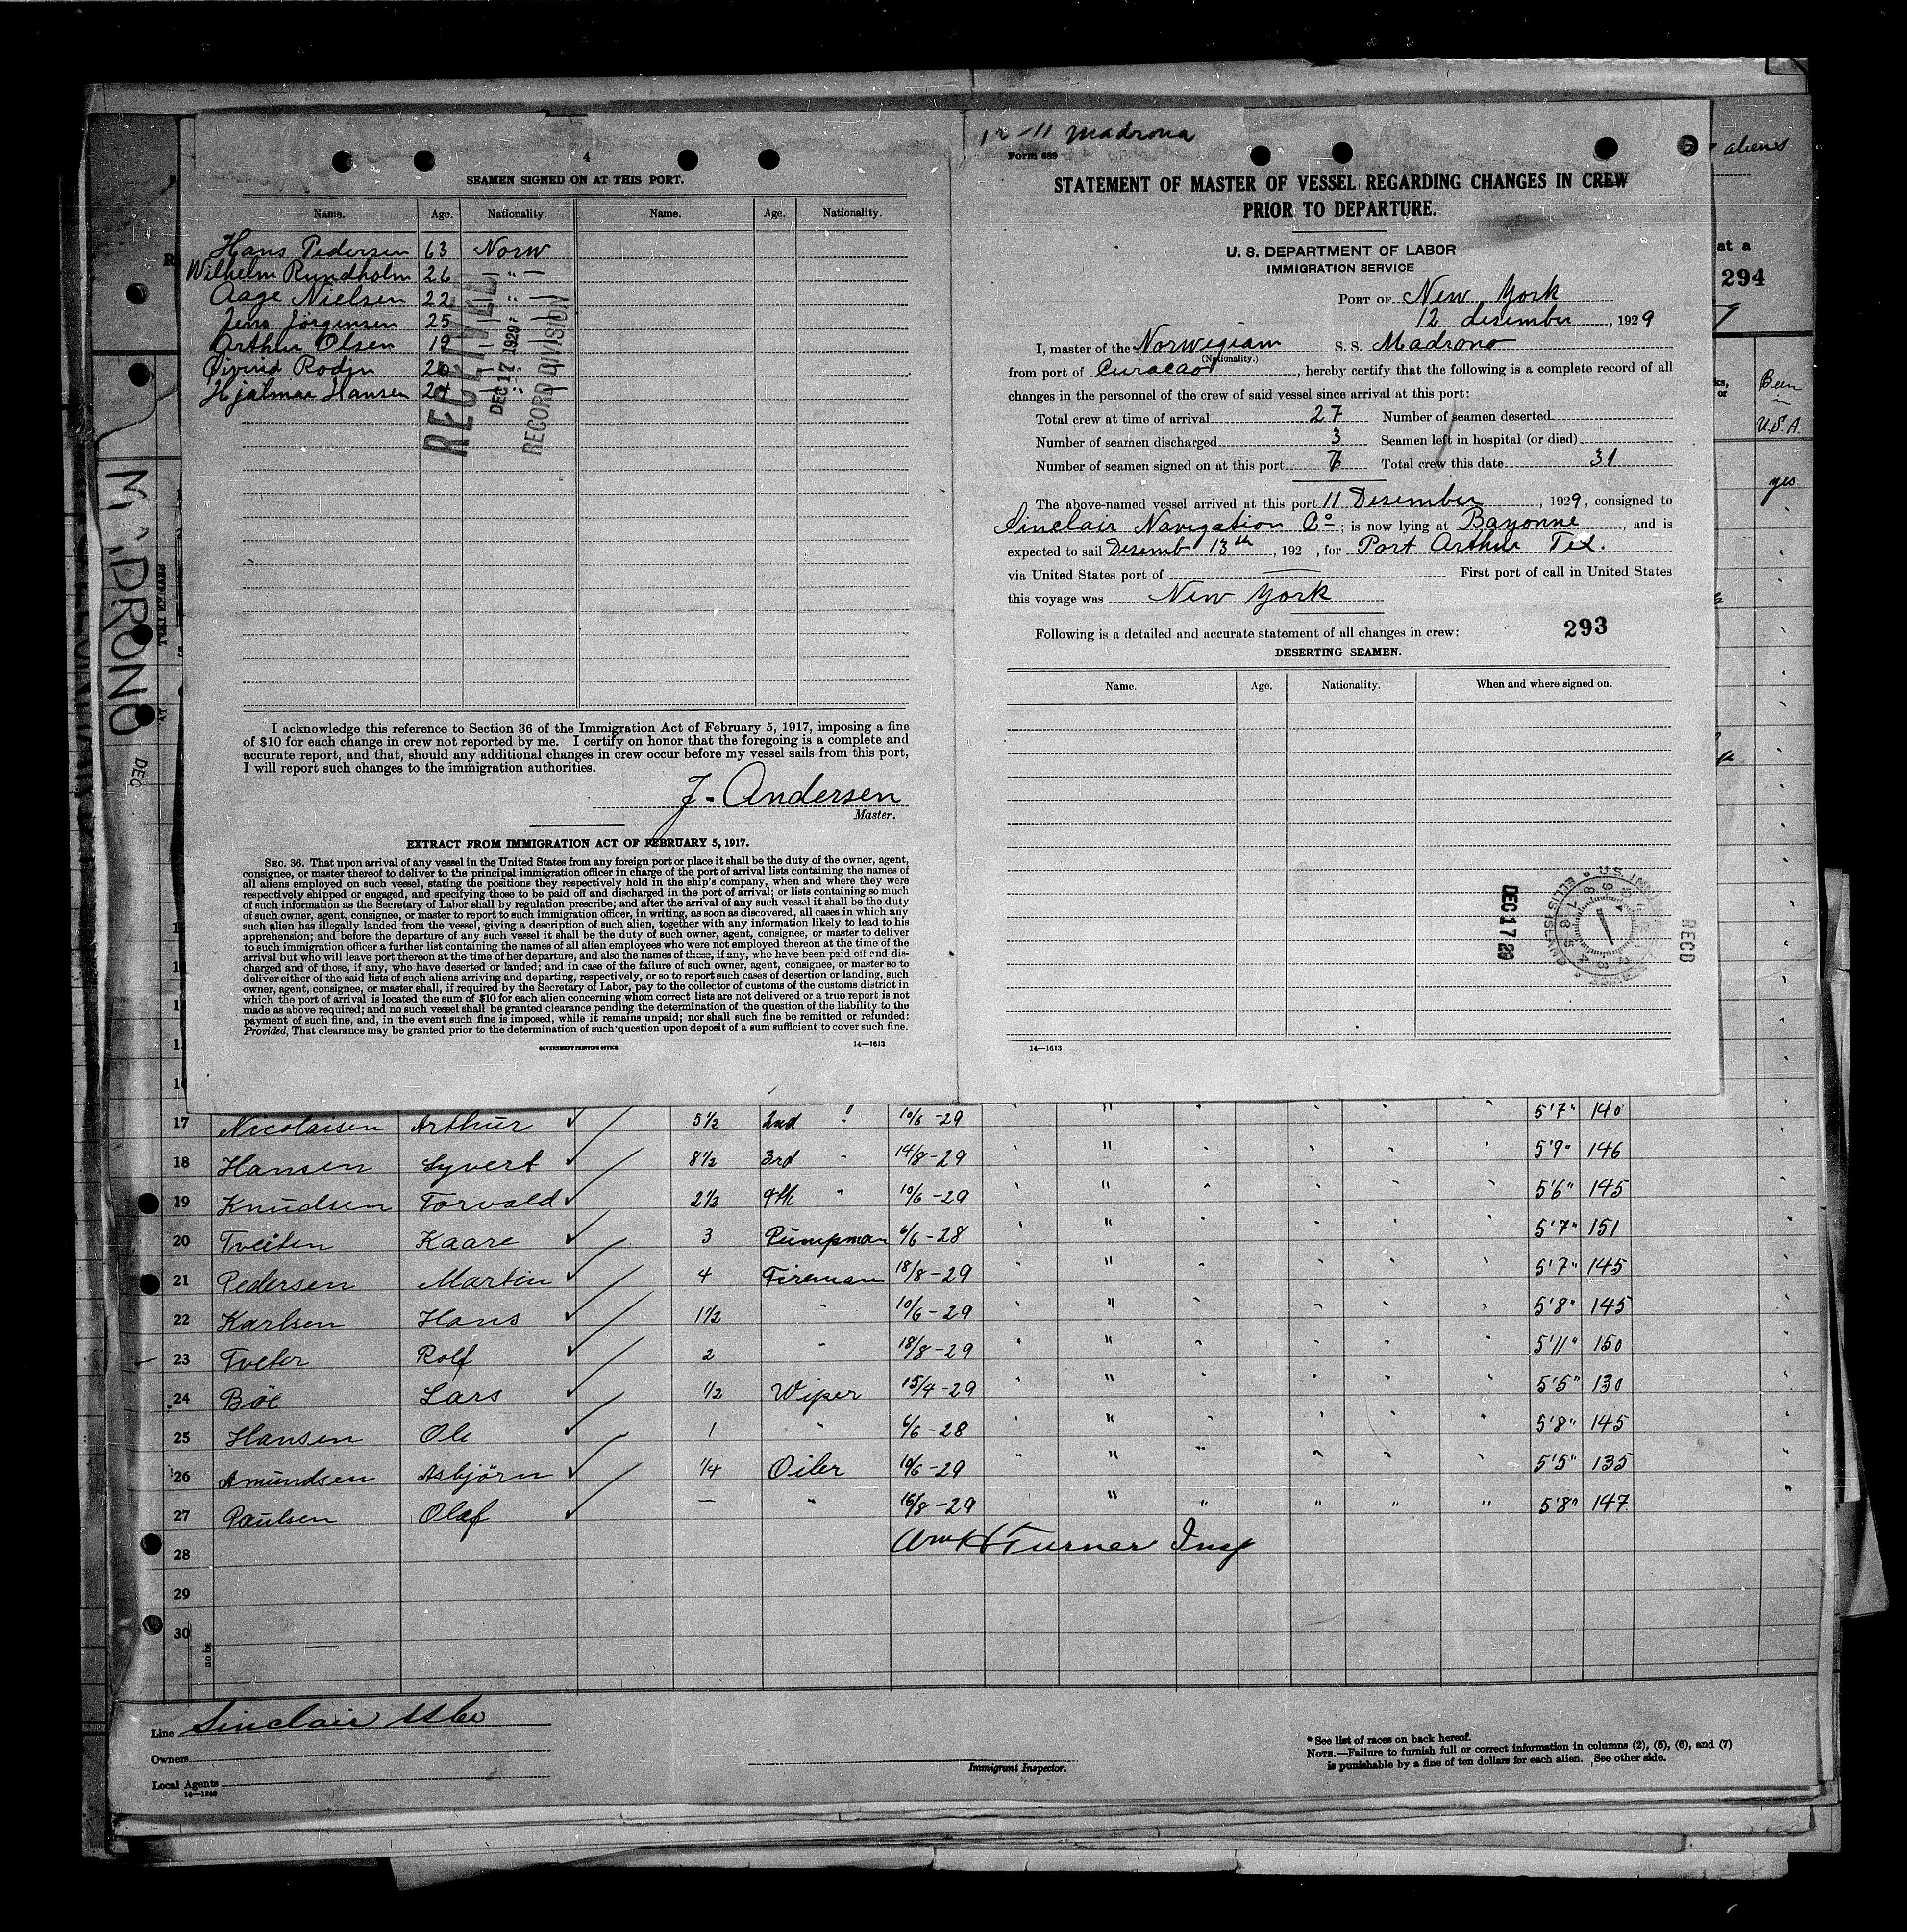 4
SEAMEN SIGNED ON AT THIS PORT.
Name. Age. Nationality. Name. Age. Nationality.
Hans Pedersen 63 Norw
Wilhelm Rundholm 26 "
Aage Nielsen 22 "
Jens Jörgensen 25 "
Arthur Olsen 19 "
Öivind Rodjn "
Hjalmar Hansen "
RECEIVED
DEC 17 1929
RECORD DIVISION
I acknowledge this reference to Section 36 of the Immigration Act of February 5, 1917, imposing a fine
of $10 for each change in crew not reported by me. I certify on honor that the foregoing is a complete and
accurate report, and that, should any additional changes in crew occur before my vessel sails from this port,
I will report such changes to the immigration authorities.
J. Andersen
Master.
EXTRACT FROM IMMIGRATION ACT OF FEBRUARY 5, 1917.
SEC. 36. That upon arrival of any vessel in the United States from any foreign port or place it shall be the duty of the owner, agent,
consignee, or master thereof to deliver to the principal immigration officer in charge of the port of arrival lists containing the names of
all aliens employed on such vessel, stating the positions they respectively hold in the ship's company, when and where they were
respectively shipped or engaged, and specifying those to be paid off and discharged in the port of arrival; or lists containing so much
of such information as the Secretary of Labor shall by regulation prescribe; and after the arrival of any such vessel it shall be the duty
of such owner, agent, consignee, or master to report to such immigration officer, in writing, as soon as discovered, all cases in which any
such alien has illegally landed from the vessel, giving a description of such alien, together with any information likely to lead to his
apprehension; and before the departure of any such vessel it shall be the duty of such owner, agent, consignee, or master to deliver
to such immigration officer a further list containing the names of all alien employees who were not employed thereon at the time of the
arrival but who will leave port thereon at the time of her departure, and also the names of those, if any, who have been paid off and dis-
charged and of those, if any, who have deserted or landed; and in case of the failure of such owner, agent, consignee, or master so to
deliver either of the said lists of such aliens arriving and departing, respectively, or so to report such cases of desertion or landing, such
owner, agent, consignee, or master shall, if required by the Secretary of Labor, pay to the collector of customs of the customs district in
which the port of arrival is located the sum of $10 for each alien concerning whom correct lists are not delivered or a true report is not
made as above required; and no such vessel shall be granted clearance pending the determination of the question of the liability to the
payment of such fine, and, in the event such fine is imposed, while it remains unpaid; nor shall such fine be remitted or refunded:
Provided, That clearance may be granted prior to the determination of such question upon deposit of a sum sufficient to cover such fine.
GOVERNMENT PRINTING OFFICE 14—1613
12-11 Madrona
Form 689
STATEMENT OF MASTER OF VESSEL REGARDING CHANGES IN CREW
PRIOR TO DEPARTURE.
U. S. DEPARTMENT OF LABOR
IMMIGRATION SERVICE
PORT OF New York
12 desember, 1929
I, master of the Norwegian S. S. Madrono
(Nationality.)
from port of Curacao, hereby certify that the following is a complete record of all
changes in the personnel of the crew of said vessel since arrival at this port:
Total crew at time of arrival 27 Number of seamen deserted
Number of seamen discharged 3 Seamen left in hospital (or died)
Number of seamen signed on at this port 7 Total crew this date 31
The above-named vessel arrived at this port 11 Desember, 1929, consigned to
Sinclair Navigation Co; is now lying at Bayonne, and is
expected to sail Desemb 13th, 192 , for Port Arthur Tex.
via United States port of — First port of call in United States
this voyage was New York
Following is a detailed and accurate statement of all changes in crew: 293
DESERTING SEAMEN.
Name. Age. Nationality. When and where signed on.
DEC 17 29
RECD
14—1613
aliens
at a
294
Been
in
U.S.A.
yes
MADRONO
DEC
16
17 Nicolaisen Arthur 5 1/2 2nd " 10/6-29 " 5'7" 140
18 Hansen Syvert 8 1/2 3rd " 14/8-29 " 5'9" 146
19 Knudsen Torvald 2 1/2 4th " 10/6-29 " 5'6" 145
20 Tveiten Kaare 3 Pumpman 6/6-28 " 5'7" 151
21 Pedersen Martin 4 Fireman 18/8-29 " 5'7" 145
22 Karlsen Hans 1 1/2 " 10/6-29 " 5'8" 145
23 Tveter Rolf 2 " 18/8-29 " 5'11" 150
24 Böe Lars 1/2 Wiper 15/4-29 " 5'5" 130
25 Hansen Ole 1 " 6/6-28 " 5'8" 145
26 Amundsen Asbjörn 1/4 Oiler 10/6-29 " 5'5" 135
27 Paulsen Olaf — " 16/8-29 " 5'8" 147
28 Wm H Turner Insp
29
30
Line Sinclair
Owners
Local Agents
14—1240
Immigrant Inspector.
* See list of races on back hereof.
NOTE.—Failure to furnish full or correct information in columns (2), (5), (6), and (7)
is punishable by a fine of ten dollars for each alien. See other side.